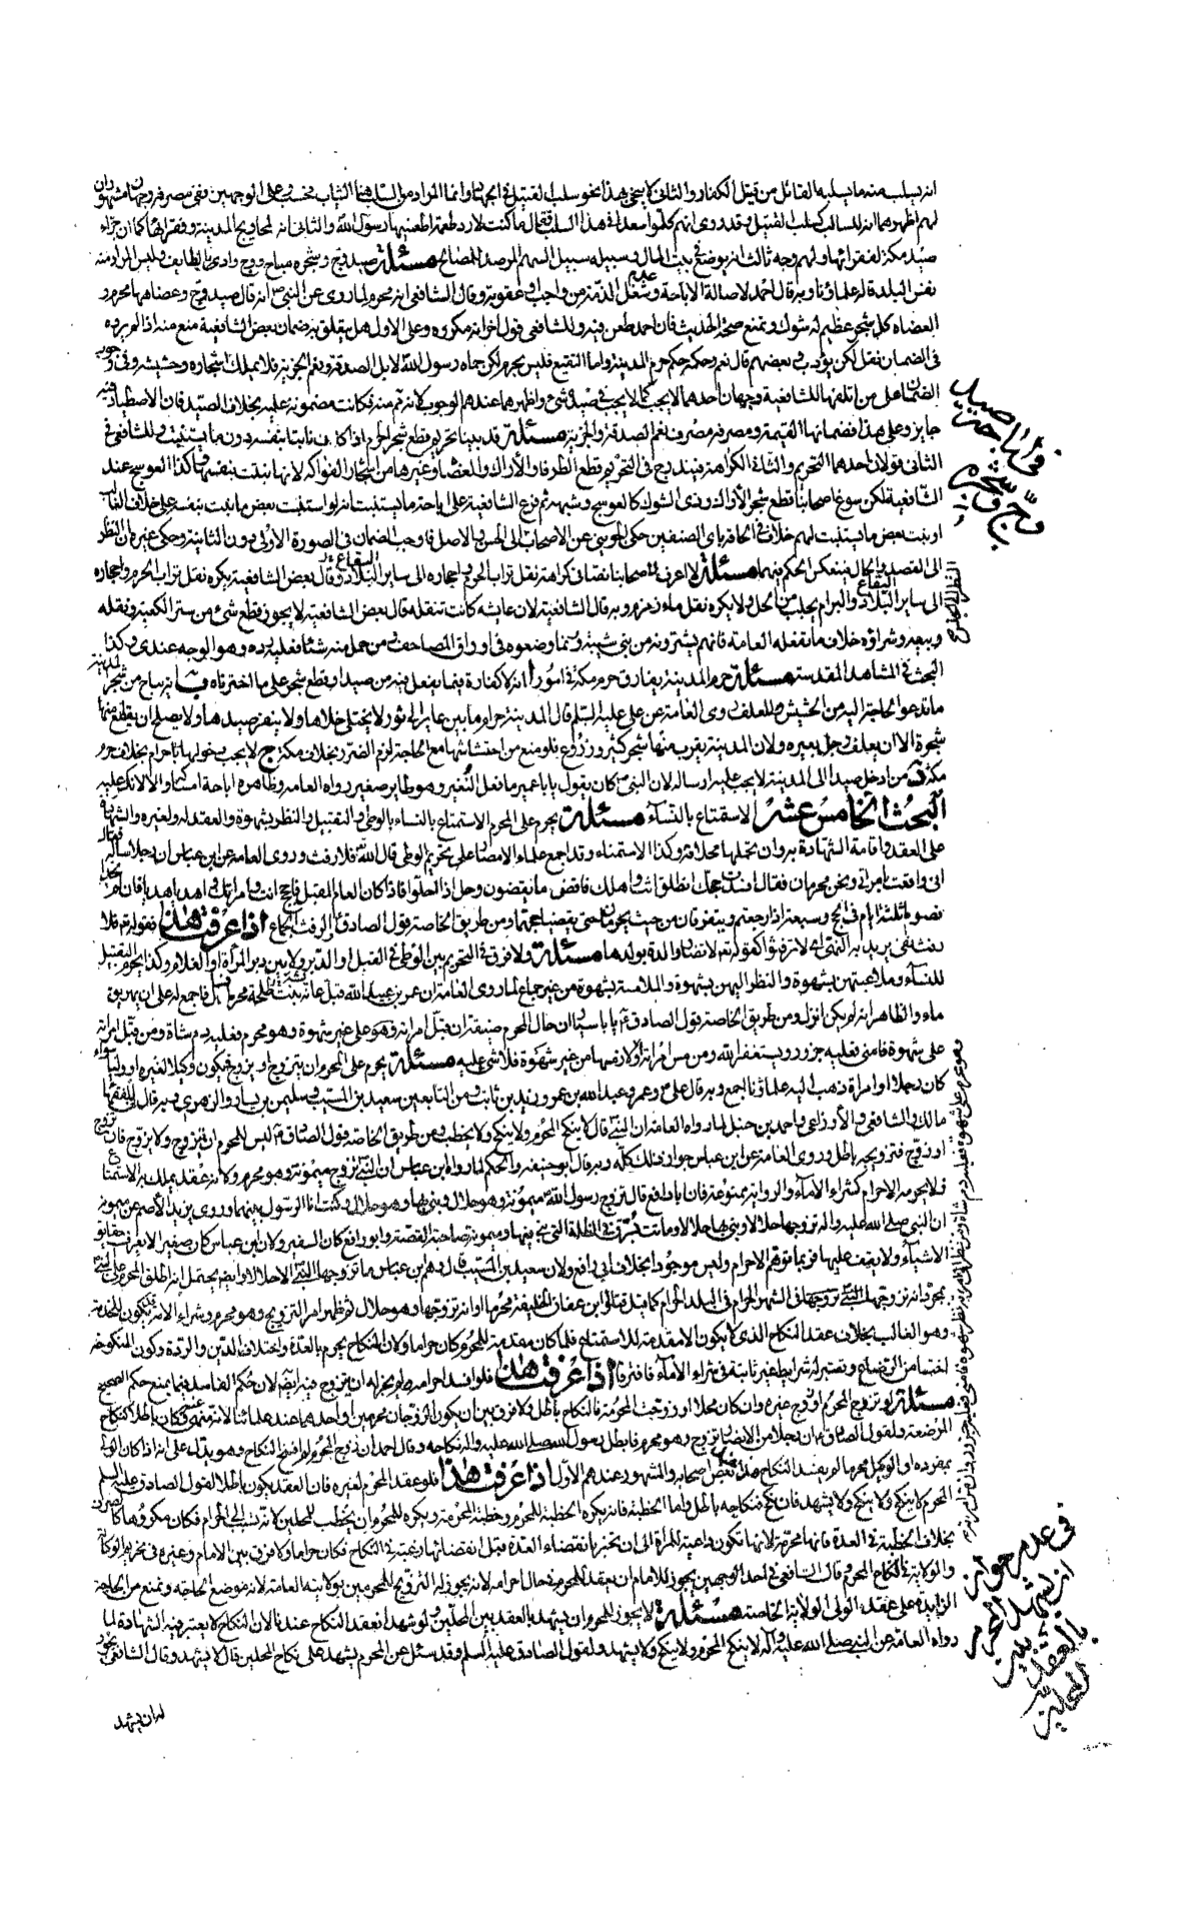 انه يسلب منه ما يسلبه القاتل من قتيل الكفار والثاني لا ينحى هذا نحو سلب القتيل في الجهاد وانما المراد من السلب هنا الثياب فحسب وعلى الوجهين ففي مصرفه وجهان مشهوران
لهم اظهرهما انه للسالب كسلب القتيل وقد روى انهم كلموا سعدا في هذا السلب فقال ما كنت لارد طعمة اطعمنيها رسول الله والثاني انه لمحاويج المدينة وفقرائها كما ان جزاء
صيد مكة لفقرائها ولهم وجه ثالث انه يوضع في بيت المال وسبيله سبيل السهم المرصد للمصالح مسئلة صيد وج وشجره مباح ووج وادي بالطايف وليس المراد منه
نفس البلدة قاله علماؤنا وبه قال احمد لاصالة الاباحة وعدم شغل الذمة من واجب او عقوبة وقال الشافعي انه محرم لما روى عن النبي ص انه قال صيد وج وعضاهها محرم و
العضاه كل شجر عظيم له شوك ونمنع صحة الحديث فان احمد طعن فيه وللشافعي قول اخر انه مكروه وعلى الاول هل يتعلق به ضمان بعض الشافعية منع منه اذ لم يرد
في الضمان نقل لكن يؤدب وبعضهم قال نعم وحكمه حكم حرم المدينة واما النقيع فليس بحرم لكن حماه رسول الله لابل الصدقة ونعم الجزية فلا يملك اشجاره وحشيشه وفي وجوب
الضمان على من اتلفها للشافعية وجهان احدهما لا يجب كما لا يجب في صيده شيء واظهرهما عندهم الوجوب لانه منع منه فكانت مضمونة عليه بخلاف الصيد فان الاصطياد فيه
جايز وعلى هذا فضمانها القيمة ومصرفه مصرف نعم الصدقة والجزية مسئلة قد بينا تحريم قطع شجر الحرم اذا كان نابتا بنفسه دون ما يستنبت وللشافعي في
الثاني قولان احدهما التحريم والثاني الكراهة فيندرج في التحريم قطع الطرفا والاراك والعضاه وغيرها من اشجار الفواكه لانها تنبت بنفسها وكذا العوسج عند
الشافعية لكن سوغ اصحابنا قطع شجر الاراك وذي الشوك كالعوسج وشبهه ثم فرع الشافعية على اباحة ما يستنبت انه لو استنبت بعض ما ينبت بنفسه على خلاف الغالب
او نبت بعض ما يستنبت لهم خلاف حكى الجويني عن الاصحاب النظر الى الجنس والاصل فاوجب الضمان في الصورة الاولى دون الثانية وحكى غيره ان النظر
الى القصد والحال فينعكس الحكم فيهما مسئلة لا اعرف لاصحابنا نصا في كراهة نقل تراب الحرم واحجاره الى ساير البقاع وقال بعض الشافعية يكره نقل تراب الحرم واحجاره
الى ساير البقاع والبرام يجلب من الحل ولا يكره نقل ماء زمزم وبه قال الشافعية لان عايشة كانت تنقله قال بعض الشافعية لا يجوز قطع شئ من ستر الكعبة ونقله
وبيعه وشراؤه خلاف ما تفعله العامة فانهم يشترونه من بني شيبة وربما وضعوه في اوراق المصاحف ومن حمل منه شيئا فعليه رده وهو الوجه عندي وكذا
البحث في المشاهد المقدسة مسئلة حرم المدينة يفارق حرم مكة في امور ا انه لا كفارة فيما يفعل فيه من صيد او قطع شجر على ما اخترناه ب انه يباح من شجر المدينة
ما تدعوا الحاجة اليه من الحشيش للعلف روى العامة عن علي عليه السلم قال المدينة حرام ما بين عاير الى ثور لا يختلى خلاها ولا ينفر صيدها ولا يصلح ان يقطع منها
شجرة الا ان يعلف رجل بعيره ولان المدينة يقرب منها شجر كثير وزروع فلو منع من احتشاشها مع الحاجة لزم الضرر بخلاف مكة ج لا يجب دخولها باحرام بخلاف حرم
مكة د من ادخل صيدا الى المدينة لا يجب عليه ارساله لان النبي ص كان يقول يا ابا عمير ما فعل النغير وهو طاير صغير رواه العامة وظاهره اباحة امساكه والا لانكر عليه
البحث الخامس عشر الاستمتاع بالنساء مسئلة يحرم على المحرم الاستمتاع بالنساء بالوطى والتقبيل والنظر بشهوة والعقد له ولغيره والشهادة
على العقد واقامة الشهادة به وان تحملها محلا وكذا الاستمناء وقد اجمع علماء الامصار على تحريم الوطى قال الله فلا رفث وروى العامة عن ابن عباس ان رجلا ساله فقال
اني واقعت بامراتي ونحن محرمان فقال افسدت حجك انطلق انت واهلك فاقض ما يقضون وحل اذا احلوا فاذا كان العام المقبل فاحج انت وامراتك واهديا هديا فان لم تجدا
فصوما ثلثة ايام في الحج وسبعة اذا رجعتم ويتفرقان من حيث يحرمان حتى يقضيا حجهما ومن طريق الخاصة قول الصادق الرفث الجماع اذا عرفت هذا فقوله تع فلا
رفث نفي يريد به النهي اي لا ترفثوا كقوله تع لا تضار والدة بولدها مسئلة ولا فرق في التحريم بين الوطى في القبل والدبر ولا بين دبر المرأة او الغلام وكذا يحرم التقبيل
للنساء وملاعبتهن بشهوة والنظر اليهن بشهوة والملامسة بشهوة من غير جماع لما روى العامة ان عمر بن عبيد الله قبل عايشة بنت طلحة محرما فسأل فاجمع له على ان يهريق
ماء والظاهر انه لم يكن انزل ومن طريق الخاصة قول الصادق ع يا با سيار ان حال المحرم ضيقة ان قبل امراته وهو على غير شهوة وهو محرم فعليه دم شاة ومن قبل امراته
على شهوة فامنى فعليه جزور ويستغفر الله ومن مس امراته او لازمها من غير شهوة فلا شي عليه مسئلة يحرم على المحرم ان يتزوج او يزوج فيكون وكيلا لغيره او وليا سواء
كان رجلا او امراة ذهب اليه علماؤنا اجمع وبه قال علي ع وعمر وعبد الله بن عمر وزيد بن ثابت ومن التابعين سعيد بن المسيب وسليمن بن يسار والزهري وبه قال في الفقهاء
مالك والشافعي والاوزاعي واحمد بن حنبل لما رواه العامة ان النبي ص قال لا ينكح المحرم ولا ينكح ولا يخطب ومن طريق الخاصة قول الصادق ع ليس للمحرم ان يتزوج ولا يزوج فان تزوج
او زوج فتزويجه باطل وروى العامة عن ابن عباس جواز ذلك كله وبه قال ابو حنيفة والحكم لما رواه ابن عباس ان النبي ص تزوج ميمونة وهو محرم ولانه عقد يملك به الاستمتاع
فلا يحرمه الاحرام كشراء الاماء والرواية ممنوعة فان ابا رافع قال تزوج رسول الله ميمونة وهو حلال وبنى بها وهو حلال وكنت انا الرسول بينهما وروى يزيد الاصم عن ميمونة
ان النبي صلى الله عليه واله تزوجها حلالا وبنى بها حلالا وماتت بسرف في الظلة التي بنى فيها وميمونة صاحبة القصة وابو رافع كان السفير ولان ابن عباس كان صغيرا لا يعرف حقايق
الاشياء ولا يقف عليها فربما توهم الاحرام وليس موجودا بخلاف ابي رافع ولان سعيد بن المسيب قال وهم ابن عباس ما تزوجها النبي الا حلالا وايضا يحتمل انه اطلق المحرم على النبي ص
بمجرد انه تزوجها النبي ص في الشهر الحرام في البلد الحرام كما قيل قتلوا ابن عفان الخليفة محرما او انه تزوجها وهو حلال ثم ظهر امر التزويج وهو محرم وشراء الامة قد يكون للخدمة
وهو الغالب بخلاف عقد النكاح الذي لا يكون الا مقدمة للاستمتاع فلما كان مقدمة للمحرم كان حراما ولان النكاح يحرم بالعدة واختلاف الدين والردة وكون المنكوحة
اختا من الرضاع ويعتبر له شرايط غير ثابتة في شراء الاماء فافترقا اذا عرفت هذا فلو افسد احرامه لم يجز له ان يتزوج فيه ايضا لان حكم الفاسد فيما يمنع حكم الصحيح
مسئلة لو تزوج المحرم او زوج غيره وان كان محلا او زوجت المحرمة فالنكاح باطل ولا فرق بين ان يكون الزوجان محرمين او احدهما عند علمائنا لانه منهي عنه فكان باطلا كنكاح
المرضعة ولقول الصادق ع ان رجلا من الانصار تزوج وهو محرم فابطل رسول الله صلى الله عليه واله نكاحه وقال احمد ان زوج المحرم لم افسخ النكاح وهو يدل على انه اذا كان الولي
بمفرده او الوكيل محرما لم يفسد النكاح والمذهب عند بعض اصحابه والمشهور عندهم الاول اذا عرفت هذا فلو عقد المحرم لغيره فان العقد يكون باطلا لقول الصادق عليه السلم
المحرم لا ينكح ولا ينكح ولا يشهد فان نكح فنكاحه باطل واما الخطبة فانه يكره الخطبة للمحرم وخطبة المحرمة ويكره للمحرم ان يخطب للمحلين لانه تسبب الى الحرام فكان مكروها كالصرف
بخلاف الخطبة في العدة فانها محرمة لانها تكون داعية للمراة الى ان تخبر بانقضاء العدة قبل انقضائها رغبة في النكاح فكان حراما ولا فرق بين الامام وغيره في تحريم الوكالة
والولاية في النكاح المحرم وقال الشافعي في احد الوجهين يجوز للامام ان يعقد للمحرم في حال احرامه لانه يجوز له التزويج للمحرمين بولايته العامة لانه موضع الحاجة ونمنع من الحاجة
الزايدة على عقد الولي الولاية الخاصة مسئلة لا يجوز للمحرم ان يشهد بالعقد بين المحلين ولو شهد انعقد النكاح عندنا لان النكاح لا يعتبر فيه الشهادة لما
رواه العامة عن النبي صلى الله عليه واله لا ينكح المحرم ولا ينكح ولا يشهد ولقول الصادق عليه السلم وقد سئل عن المحرم يشهد على نكاح المحلين قال لا يشهد وقال الشافعي يجوز
له ان يشهد
في ان صيد
وج وشجره
في عدم جواز
ان يشهد المحرم
بالعقد بين
المحلين